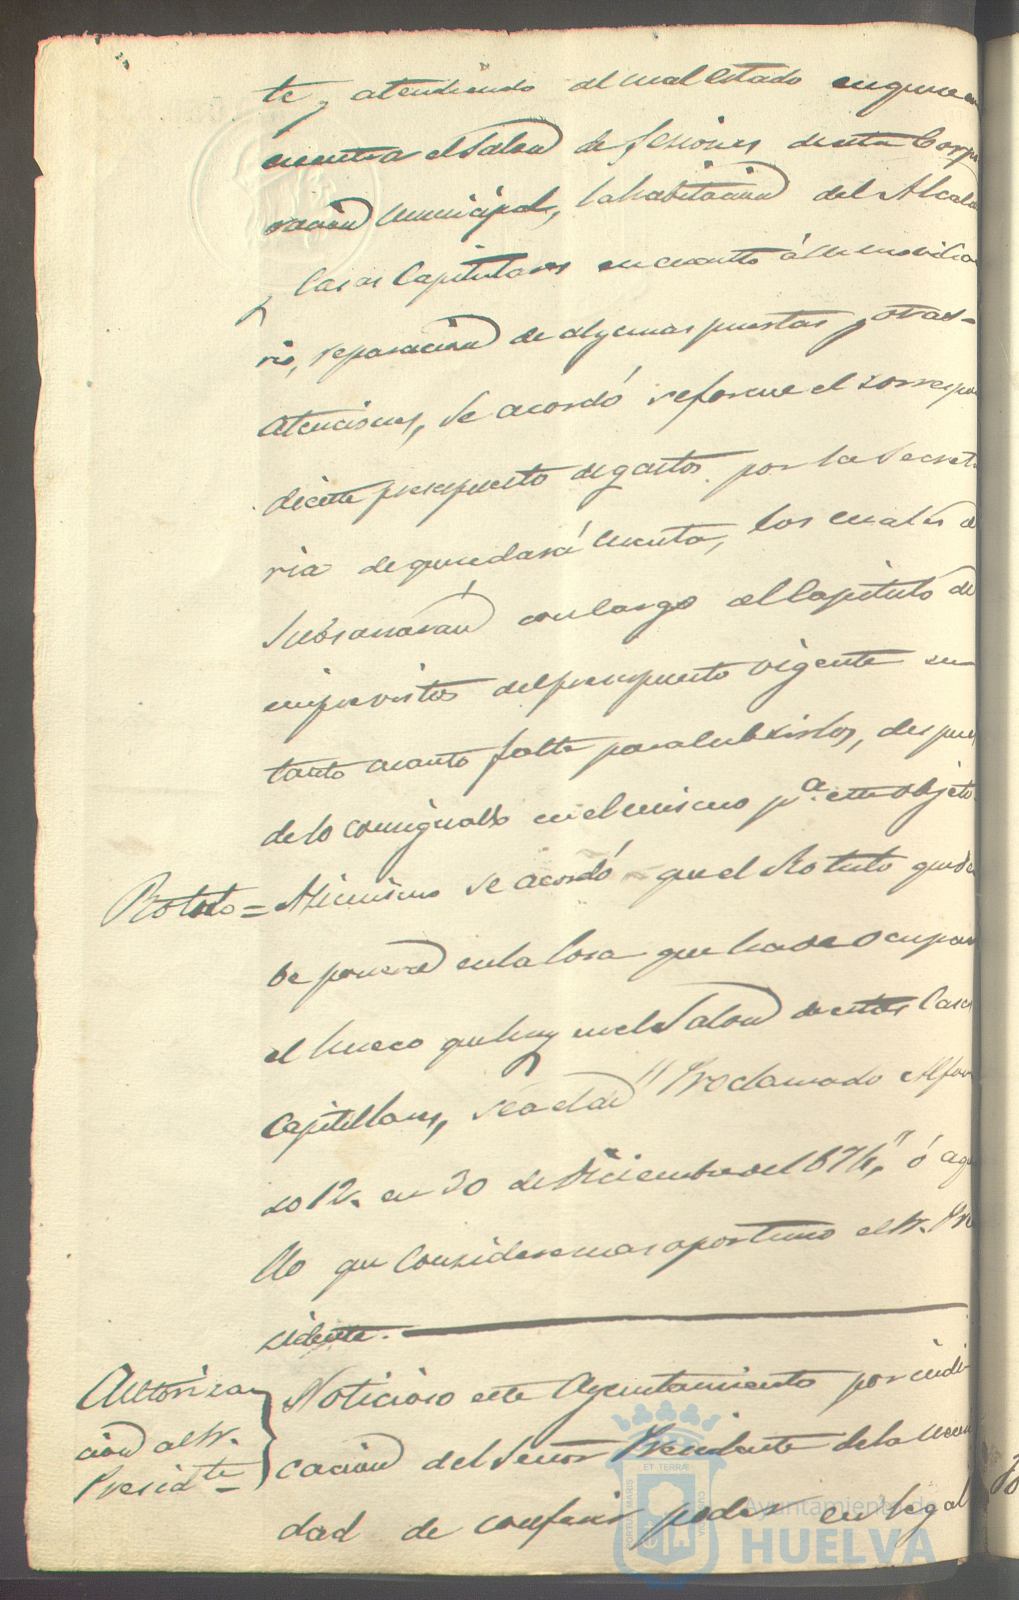 te y atendiendo al mal estado en que se en
cuentra el Salon de Sesiones de esta Corpo
racion municipal, la habitacion del Alcalde
y Casas Capitulares en cuanto á su movilia
rio, reparacion de algunas puertas y otras
atenciones, se acordó se forme el correspon
diente presupuesto de gastos por la Secreta
ria de que se dará cuenta, los cuales se
subsanarán con cargo al Capitulo de
imprevistos del presupuesto vigente en
tanto cuanto falte para cubrirlos, despues
de lo consignado en el mismo pª. este objeto.
Rotulo = Asimismo se acordó que el Rotulo que de
be ponerse en la losa que ha de ocupar
el hueco que hay en el Salon de estas Casas
Capitulares, sea el de "Proclamado Alfon
so 12. en 30 de Diciembre del 874," ó aque
llo que considere mas oportuno el Sr. Pre
sidente.
Autoriza
cion al Sr.
Presidte
Noticioso este Ayuntamiento por indi
cacion del Señor Presidente de la necesi
dad de conferir poder en legal
Ayuntamiento de
HUELVA
ET TERRÆ
PORTUS MARIS